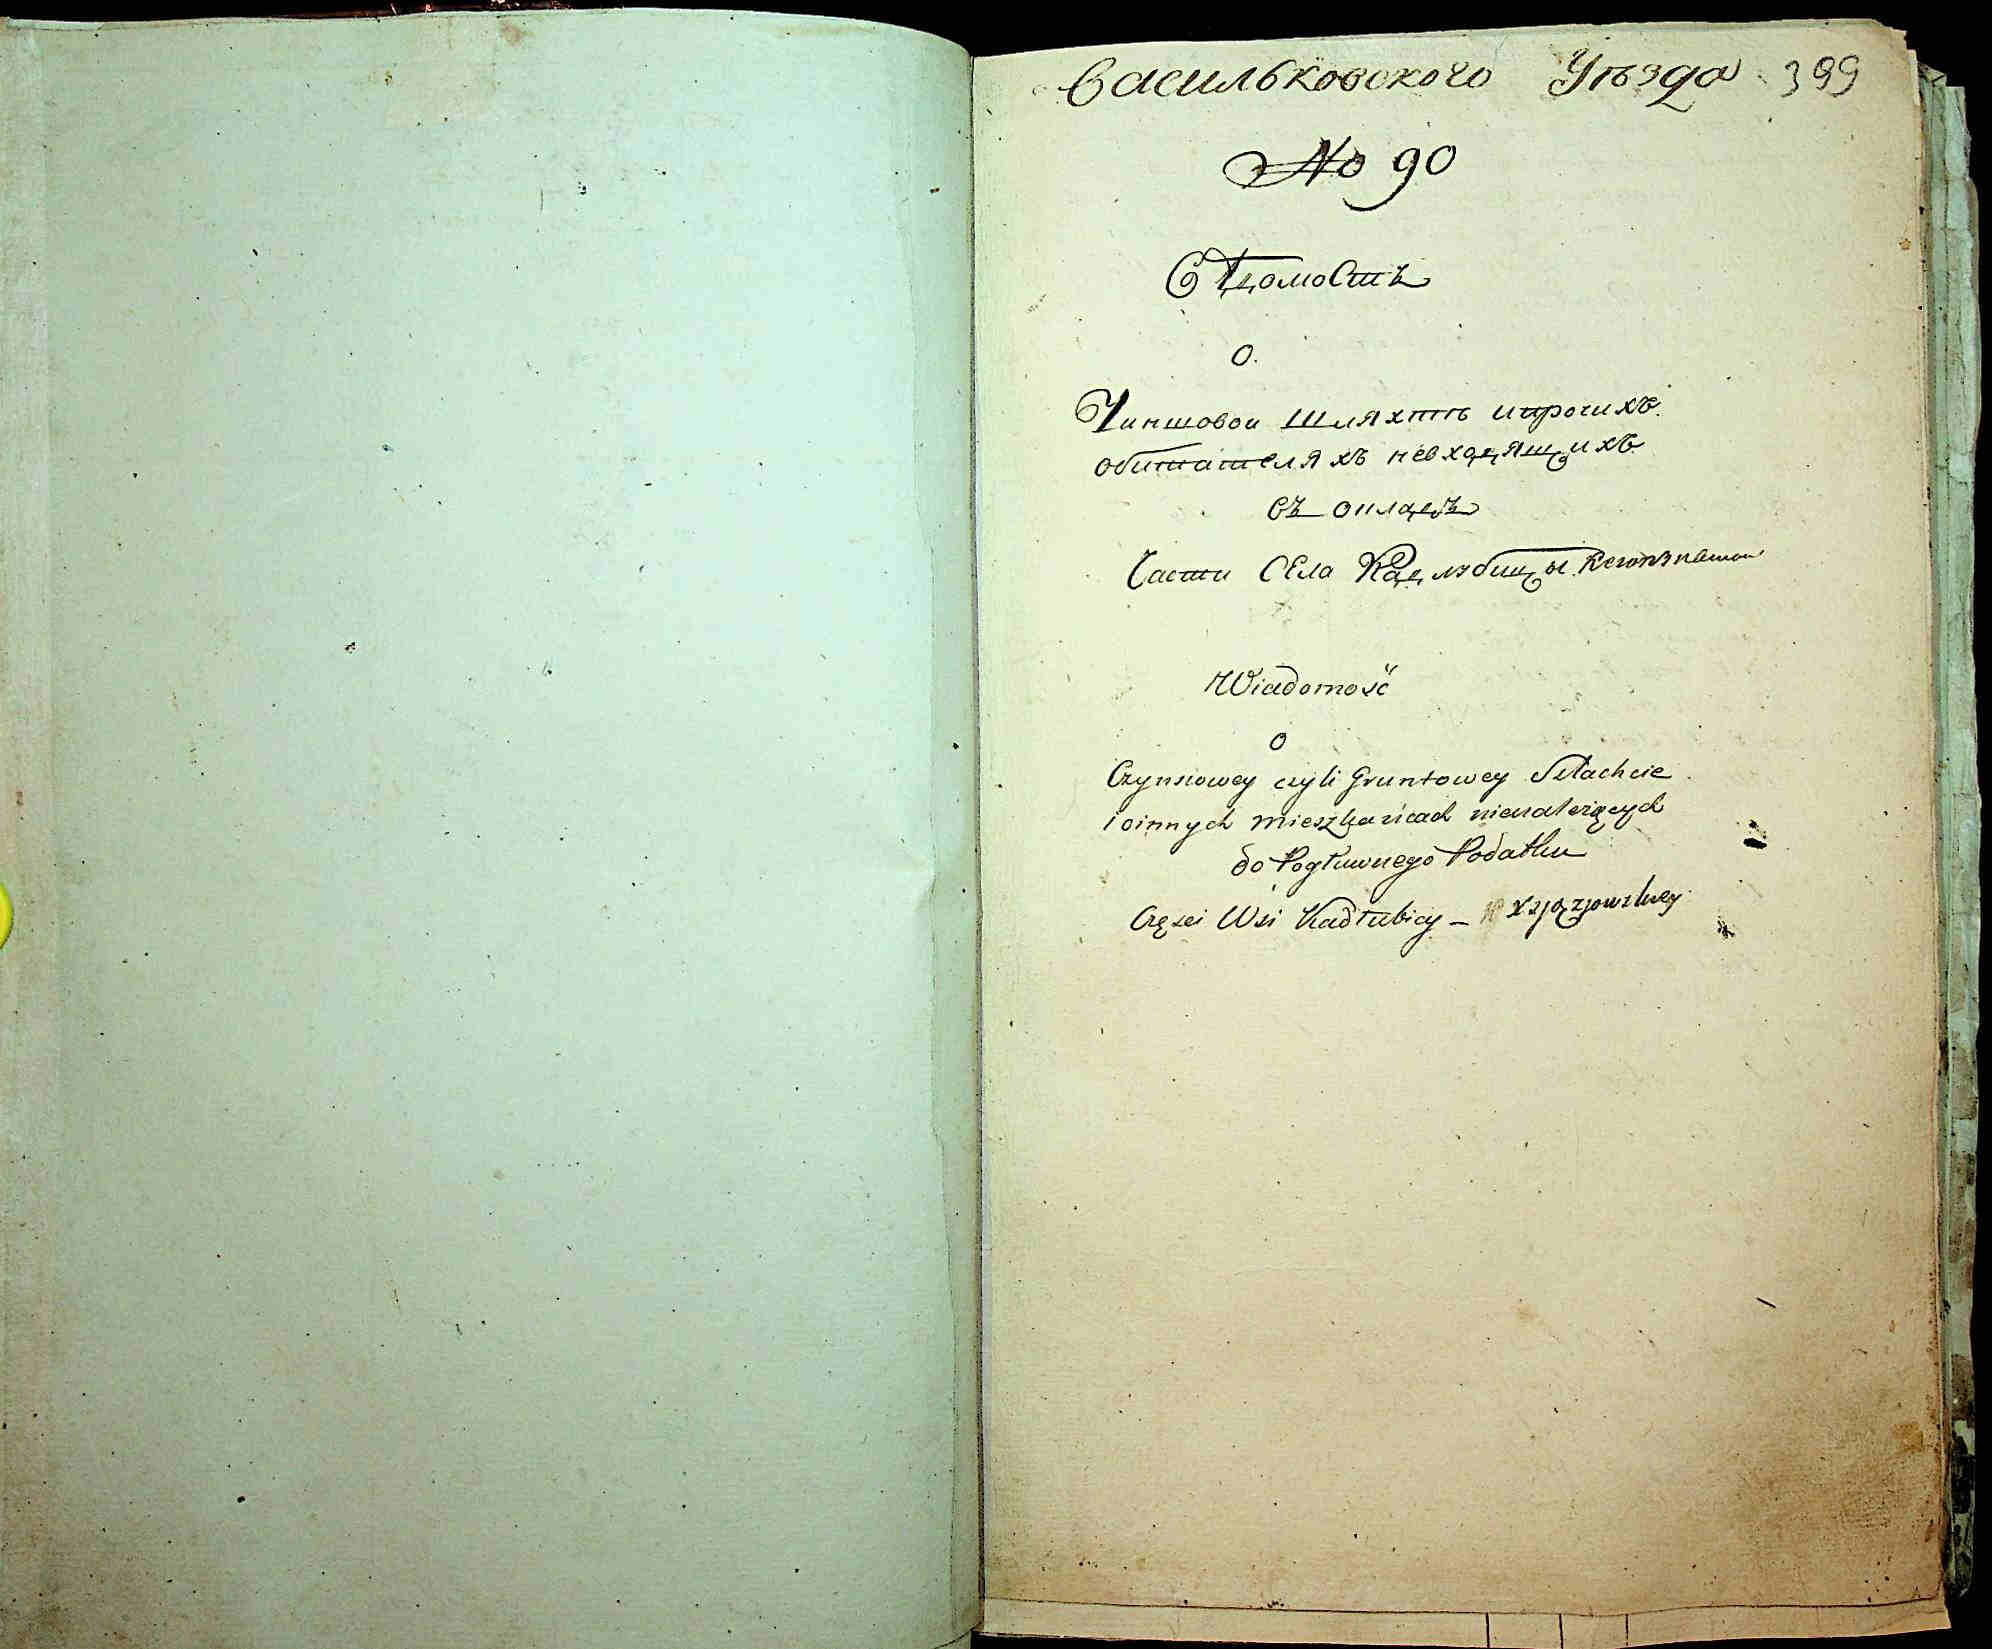 Васильковского Уѣзда 399
№ 90
Вѣдомость
о.
Чиншовои Шляхтѣ и прочихъ
обитателяхъ невходящихъ
въ окладъ
Части Села Кадлубицы
Wiadomość
o
Czynszowey czyli Gruntowey Szlachcie
i oinnych mieszkańcach nienależących
do Pogłownego Podatku
Części Wsi Kadłubicy –